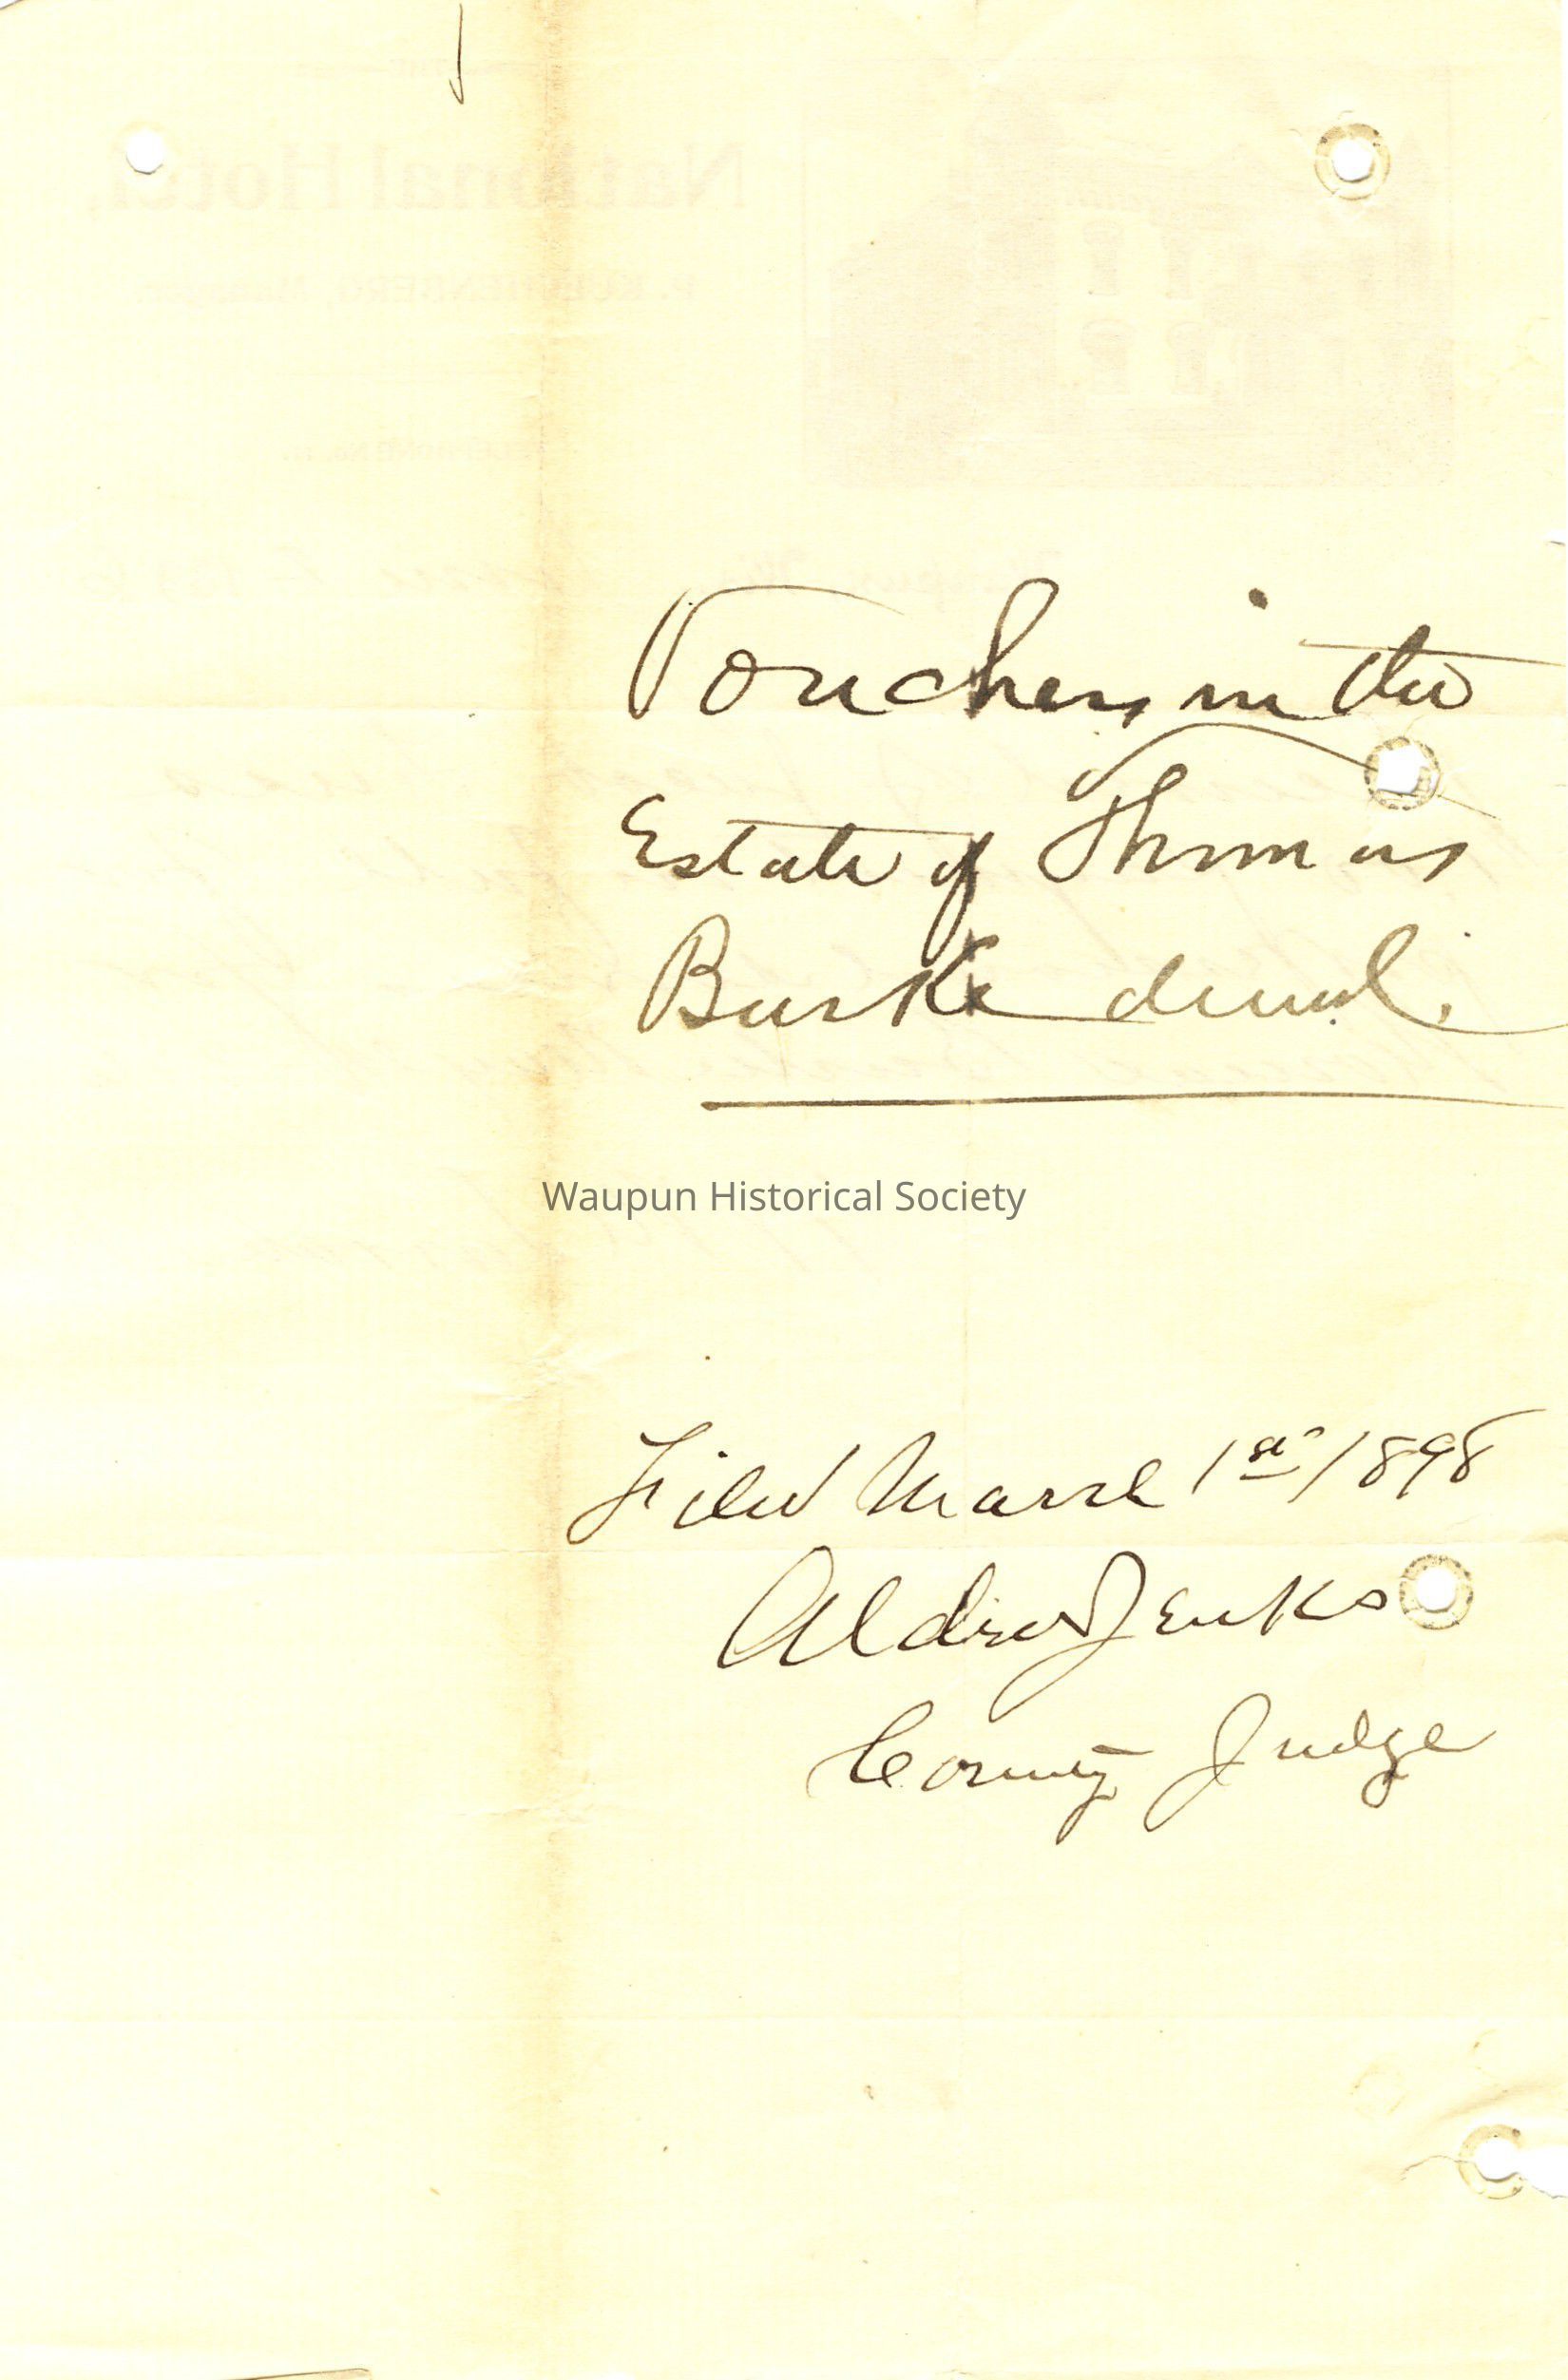 Vouchers in the
Estate of Thomas
Burke decsd.
Waupun Historical Society
Filed March 1st 1898
Aldro Jenks
County Judge